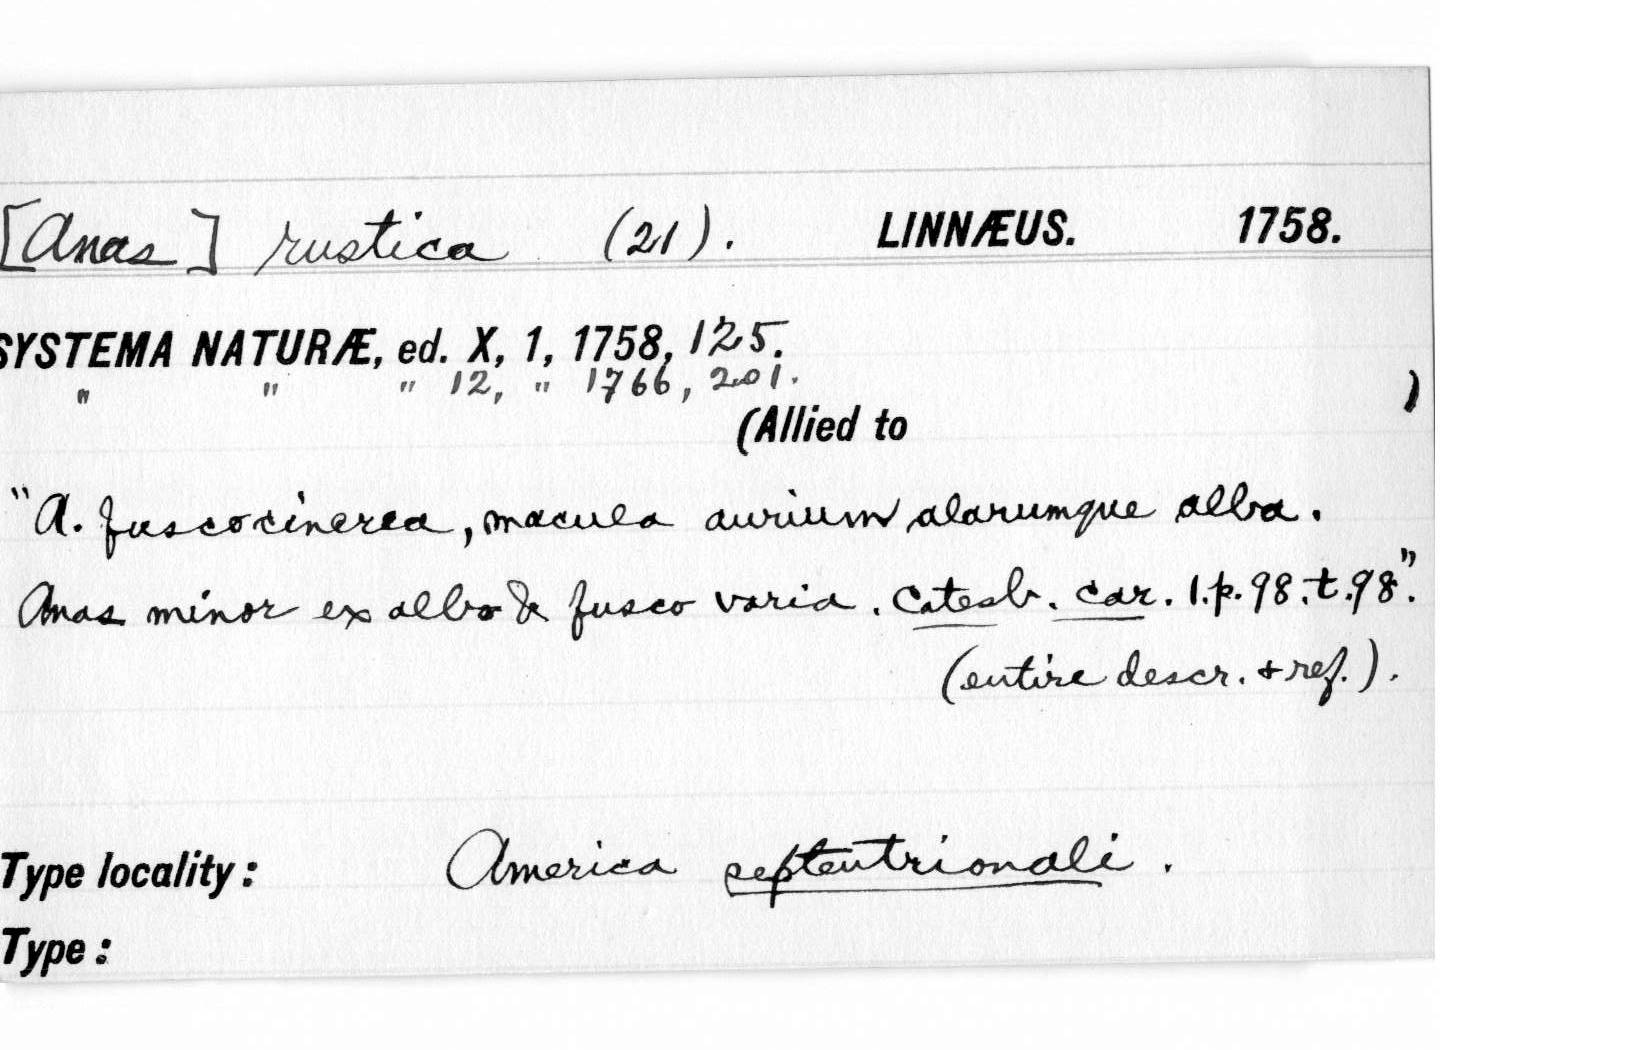 [Anas] rustica (21). LINNÆUS. 1758.
SYSTEMA NATURÆ, ed. X, 1, 1758, 125.
" " " 12, " 1766, 201.
(Allied to )
"A. fuscocinerea, macula aurium alarumque alba.
Anas minor ex albo & fusco varia. Catesb. car. 1.p.98.t.98".
(entire descr. + ref.).
Type locality: America septentrionali.
Type: